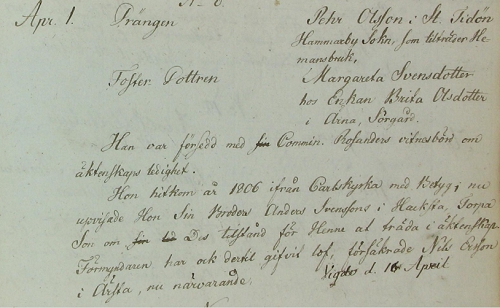 N: 6.
Apr. 1. Drängen Pehr Olsson i St. Tidön
Hammarby Sokn, som tilträder He-
mansbruk,
Foster Dottren i Margareta Svensdotter
hos Enkan Brita Olsdotter
i Arna, Sörgård.
Han var försedd med Commin. Rosanders vitnesbörd om
äktenskaps ledighet.
Hon hitkom år 1806 ifrån Carlskyrka med Betyg; nu
upviste Hon Sin Broders Anders Svenssons i Hacksta, Torpa
Sokn om Des tilstånd för Henne at träda i äktenskap.
Förmyndaren har ock dertil gifvit lof, försäkrade Nils Ersson
i Årsta, nu närvarande.
Vigde d. 16 April